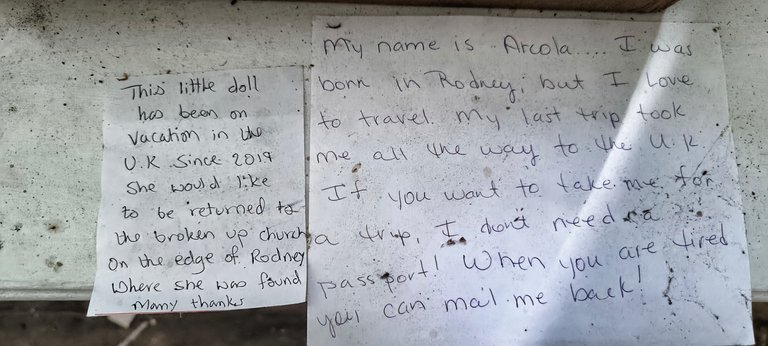 This little doll
has been on
vacation in the
U.K since 2019
She would like
to be returned to
the broken up church
on the edge of Rodney
where she was found
Many thanks
My name is Arcola.... I was
born in Rodney, but I love
to travel. My last trip took
me all the way to the U.K
If you want to take me for
a trip, I don't need a
passport! When you are tired
you can mail me back!